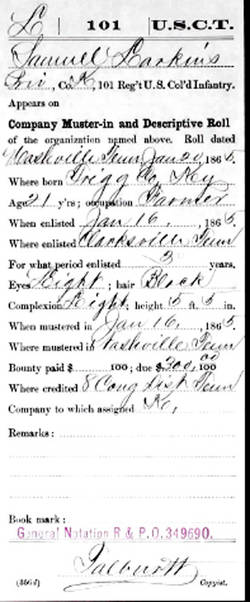 L | 101 | U.S.C.T.
Samuel Larkins
Pri, Co. K, 101 Reg't U.S. Col'd Infantry.
Appears on
Company Muster-in and Descriptive Roll
of the organization named above. Roll dated
Nashville Tenn Jan 20, 1865.
Where born Trigg Co, Ky
Age 21 y'rs; occupation Farmer
When enlisted Jan 16, 1865.
Where enlisted Clarksville Tenn
For what period enlisted 3 years.
Eyes Light; hair Black
Complexion Light; height 5 ft. 5 in.
When mustered in Jan 16, 1865.
Where mustered in Nashville Tenn
Bounty paid $ 100; due $300, 00 100
Where credited 8 Cong Dist Tenn
Company to which assigned K,
Remarks:
Book mark:
General Notation R & P.O. 349690.
Talburtt
(356d) Copyist.